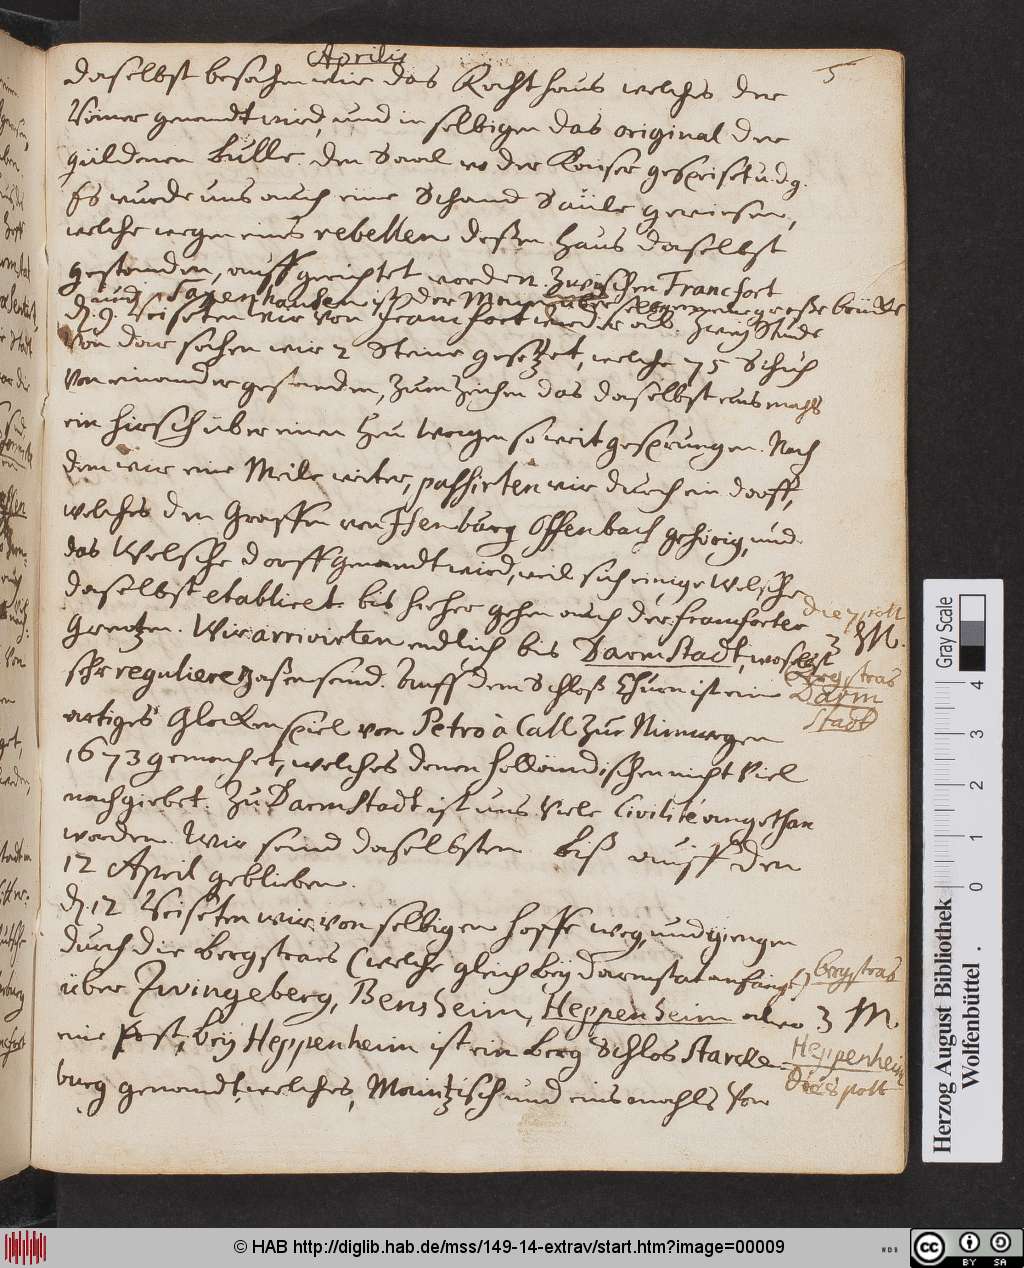 Aprilis
5
daselbst besahen wir das Rahthaus welches der
Römer genendt wird, und in selbigen das original der
güldenen bulle. den Saal wo der Kayser gespeiset u.d.g.
Es wurde uns auch eine Schand Säüle gewiesen,
welche wegen eines rebellen deßen Haus daselbst
gestanden, auff gerichtet worden. Zwischen Francfort
und Saxenhausen ist der Mayn über selbigen eine große brücke
d. 9. Reiseten wir von Francfort wieder ab. Zwey Stunde
von dar sahen wir 2 Steine gesetzet, welche 75 Schuh
von einander gestanden, zum zeichen das daselbst eins mahls
ein Hirsch über einen Heu Wagen so weit gesprungen. Nach
dem wir eine Meile weiter, passirten wir durch ein dorff,
welches den Graffen von Isenburg Offenbach gehörig, und
das Welsche dorff genandt wird, weil sich einige Welsche
daselbst etabliret. bis hieher gehen auch der francforter
Grentzen. Wir arrivirten endlich bis DarmStadt, woselbst
sehr reguliere gaßen seind. Auff dem Schloß Thurn ist ein
artiges GlocKenspiel von Petro à Call zur Nimwegen
1673 gemachet, welches denen Holländischen nicht Viel
nachgiebet. Zu DarmStadt ist uns Viele Civilité angethan
worden. Wir seind daselbsten biß auff den
12 April geblieben.
d. 12 Reiseten wir von selbigen Hoffe weg, und giengen
durch die bergstraes (welche gleich bey darmstat anfängt)
über Zwingeberg, Bensheim, Heppenheim alwo
eine Post, bey Heppenheim ist ein berg Schlos Starcke-
burg genandt, welches, Maintzisch und eins mahls von
3 M.
Bergstras
Darm
Stadt
bergstras
3 M.
Heppenheim
© HAB http://diglib.hab.de/mss/149-14-extrav/start.htm?image=00009
Herzog August Bibliothek
Wolfenbüttel
Gray Scale
0 1 2 3 4
CC BY SA